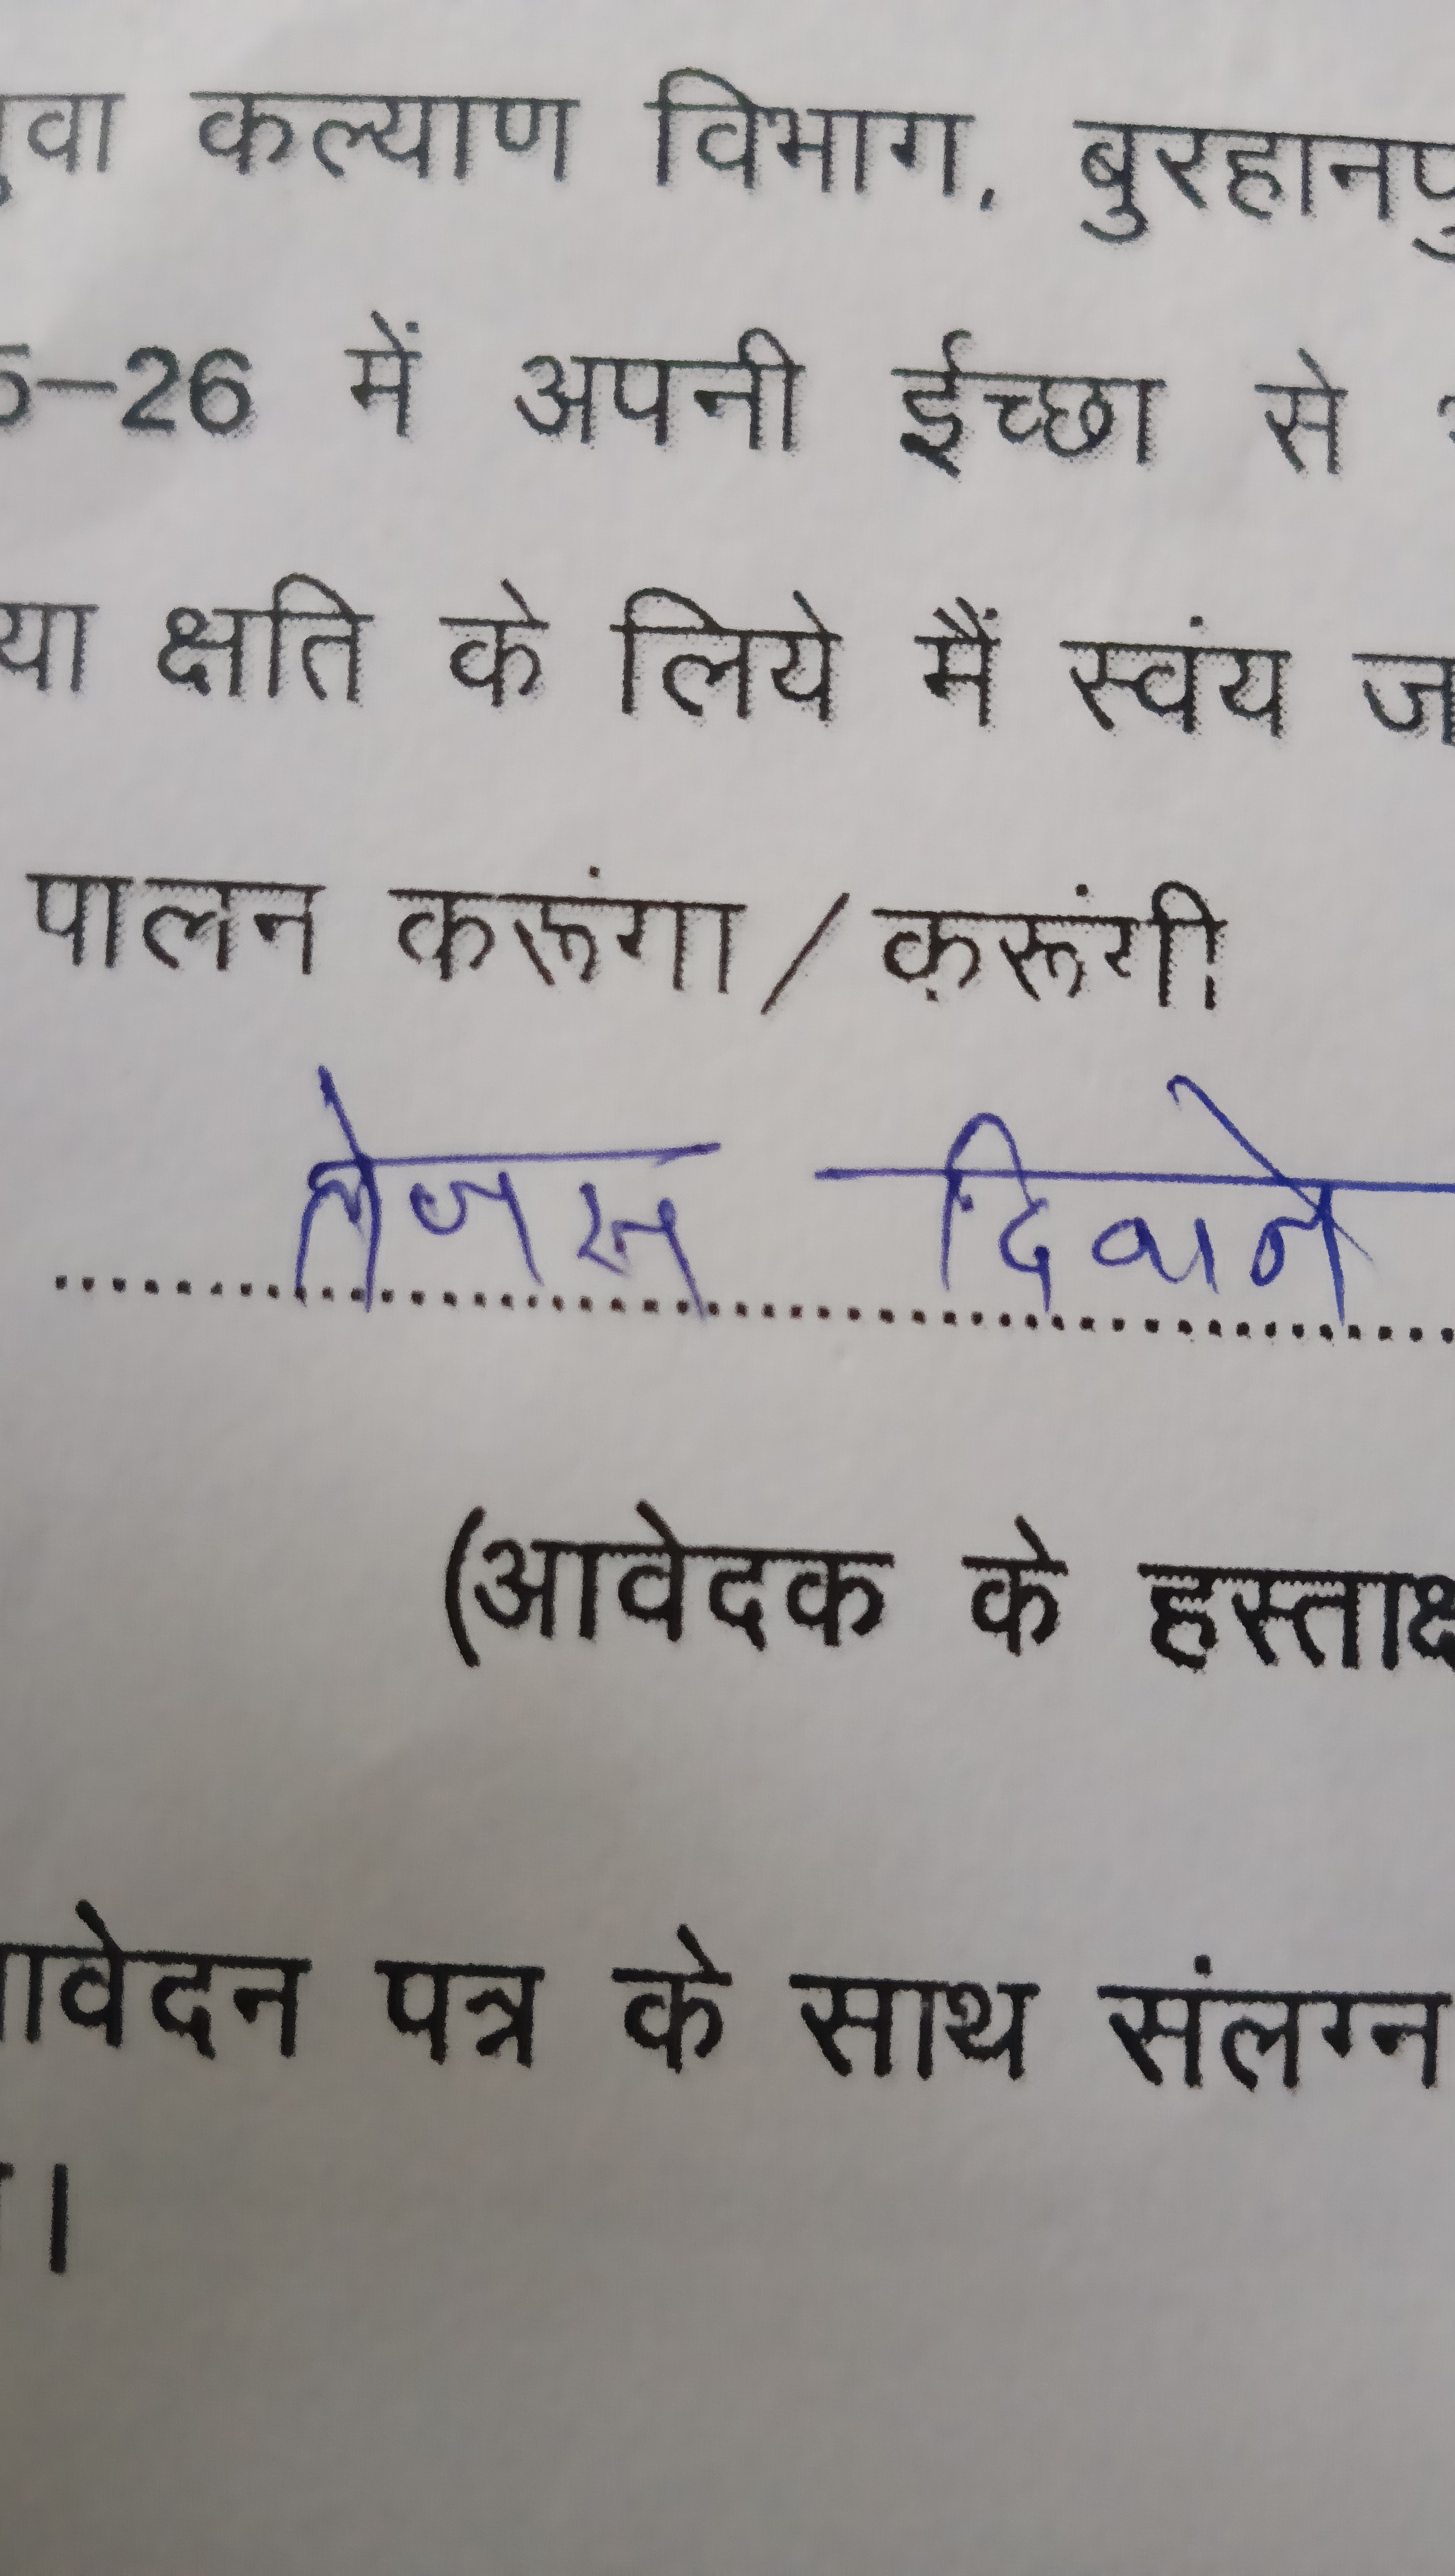 युवा कल्याण विभाग, बुरहानपु
5–26 में अपनी ईच्छा से
या क्षति के लिये मैं स्वंय ज
पालन करूंगा/करूंगी
तेजस दिवाने
(आवेदक के हस्ताक्ष
आवेदन पत्र के साथ संलग्न
।